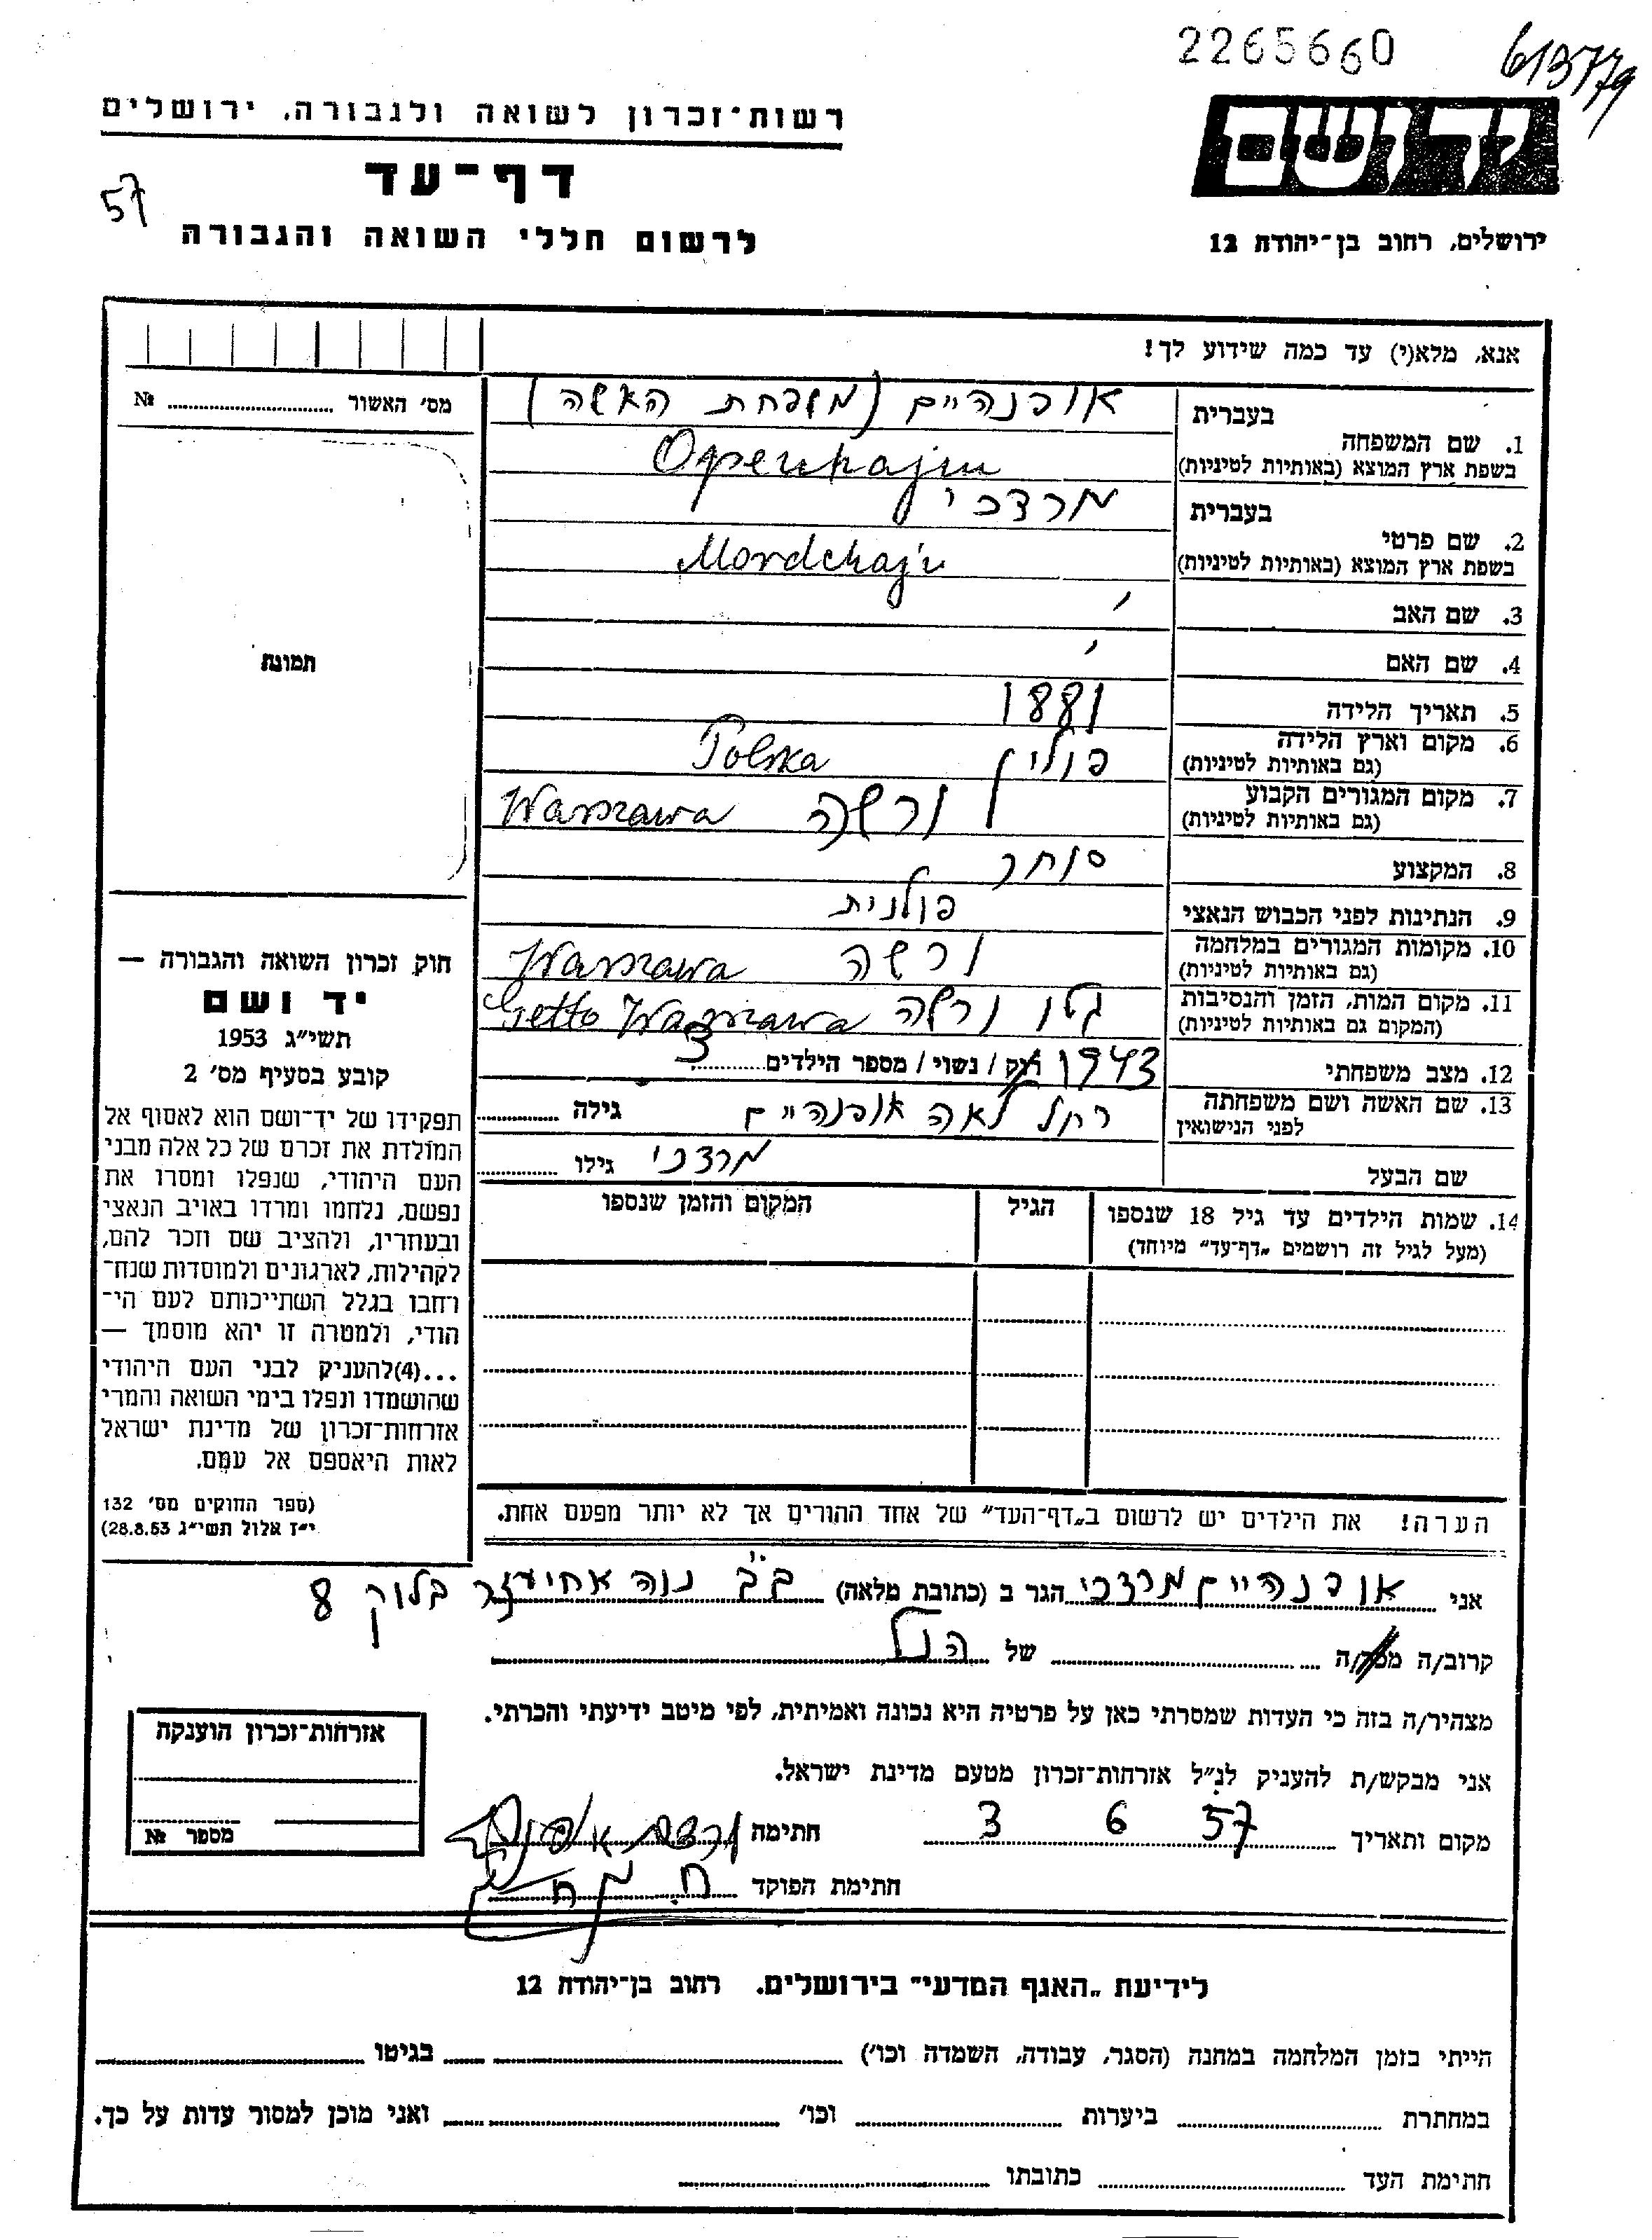 2265660
613779
רשות־זכרון לשואה ולגבורה, ירושלים
דף־עד
57
לרשום חללי השואה והגבורה
ידושם
ירושלים, רחוב בן־יהודה 12
אנא, מלא(י) עד כמה שידוע לך!
מס' האשור № 
תמונת
1. שם המשפחה
בעברית אופנהיים (משפחת האשה)
בשפת ארץ המוצא (באותיות לטיניות) Openhajm
2. שם פרטי
בעברית מרדכי
בשפת ארץ המוצא (באותיות לטיניות) Mordchaj
3. שם האב
4. שם האם
5. תאריך הלידה 1881
6. מקום וארץ הלידה (גם באותיות לטיניות) פולין Polska
7. מקום המגורים הקבוע (גם באותיות לטיניות) ורשה Warszawa
8. המקצוע סוחר
9. הנתינות לפני הכבוש הנאצי פולנית
10. מקומות המגורים במלחמה (גם באותיות לטיניות) ורשה Warszawa
11. מקום המות, הזמן והנסיבות (המקום גם באותיות לטיניות) גטו ורשה Getto Warszawa
1943
12. מצב משפחתי רוק / נשוי / מספר הילדים 3
13. שם האשה ושם משפחתה לפני הנישואין רחל לאה אופנהיים גילה
שם הבעל מרדכי גילו
14. שמות הילדים עד גיל 18 שנספו
(מעל לגיל זה רושמים „דף־עד" מיוחד)
הגיל
המקום והזמן שנספו
חוק זכרון השואה והגבורה —
יד ושם
תשי"ג 1953
קובע בסעיף מס' 2
תפקידו של יד־ושם הוא לאסוף אל
המולדת את זכרם של כל אלה מבני
העם היהודי, שנפלו ומסרו את
נפשם, נלחמו ומרדו באויב הנאצי
ובעוזריו, ולהציב שם וזכר להם,
לקהילות, לארגונים ולמוסדות שנח־
רחבו בגלל השתייכותם לעם הי־
הודי, ולמטרה זו יהא מוסמך —
...(4)להעניק לבני העם היהודי
שהושמדו ונפלו בימי השואה והמרי
אזרחות־זכרון של מדינת ישראל
לאות היאספם אל עמם.
(ספר החוקים מס' 132
י"ז אלול תשי"ג 28.8.53)
הערה! את הילדים יש לרשום ב„דף־העד" של אחד ההורים אך לא יותר מפעם אחת.
אני אופנהיים מרדכי הגר ב (כתובת מלאה) ב"ב נוה אחיעזר בלוק 8
קרוב/ה של הנ"ל
מצהיר/ה בזה כי העדות שמסרתי כאן על פרטיה היא נכונה ואמיתית, לפי מיטב ידיעתי והכרתי.
אני מבקש/ת להעניק לנ"ל אזרחות־זכרון מטעם מדינת ישראל.
מקום ותאריך 57 6 3 חתימה
חתימת הפוקד
אזרחות־זכרון הוענקה
מספר №
לידיעת „האגף המדעי" בירושלים. רחוב בן־יהודה 12
הייתי בזמן המלחמה במחנה (הסגר, עבודה, השמדה וכו') בגיטו
במחתרת ביערות וכו' ואני מוכן למסור עדות על כך.
חתימת העד כתובתו